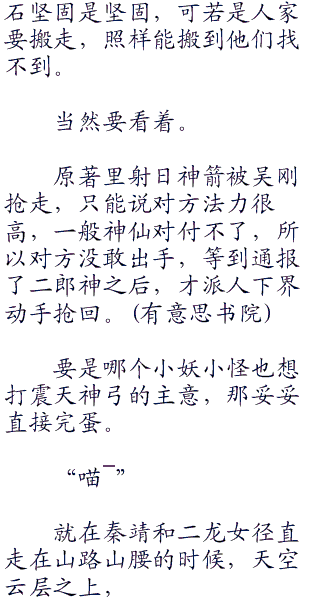 石坚固是坚固，可若是人家
要搬走，照样能搬到他们找
不到。
当然要看着。
原著里射日神箭被吴刚
抢走，只能说对方法力很
高，一般神仙对付不了，所
以对方没敢出手，等到通报
了二郎神之后，才派人下界
动手抢回。(有意思书院)
要是哪个小妖小怪也想
打震天神弓的主意，那妥妥
直接完蛋。
“喵¯”
就在秦靖和二龙女径直
走在山路山腰的时候，天空
云层之上，